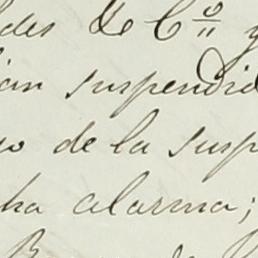 des de Cº y
ian suspendid
o de la susp
ha alarma;